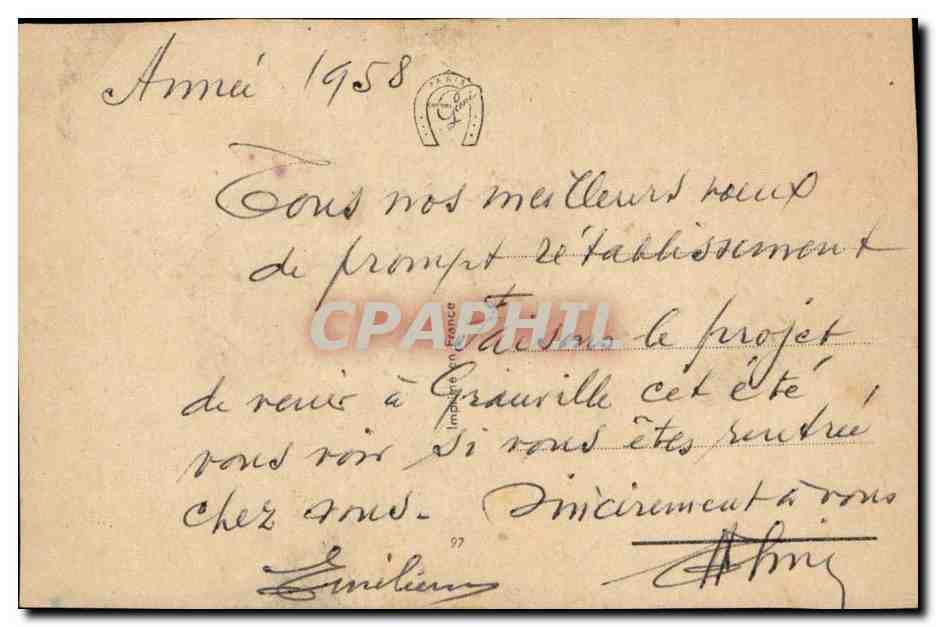 Année 1958
PARIS
Tous nos meilleurs vœux
de prompt rétablissement
Faisons le projet
de venir à Granville cet été
vous voir si vous êtes rentrée
chez vous. Sincèrement à vous
Emilienne
97
Imprimé en France
CPAPHIL